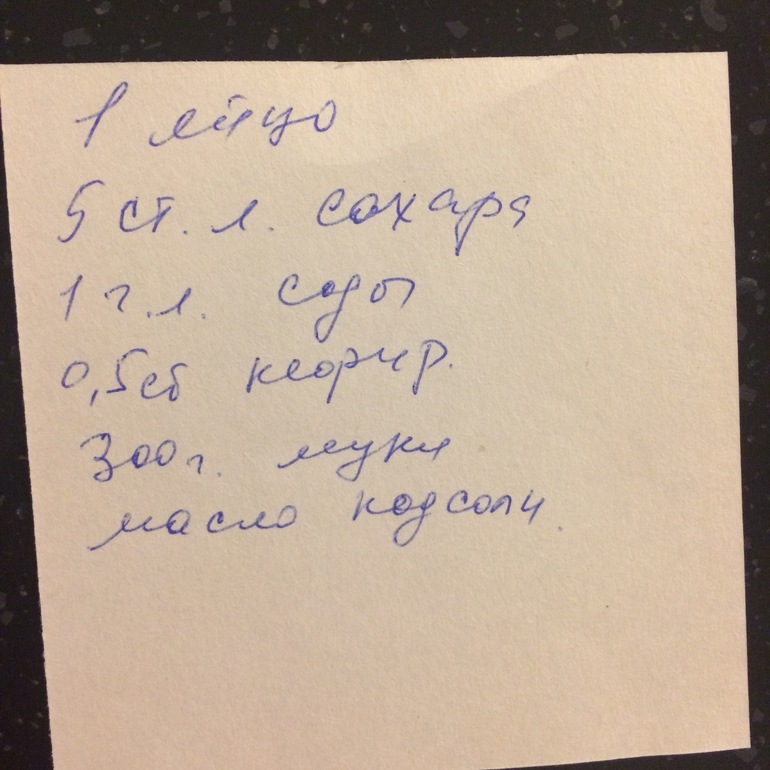 1 яйцо
5 ст. л. сахара
1 ч.л. соды
0,5 ст кефир.
300 г. муки
масло подсолн.